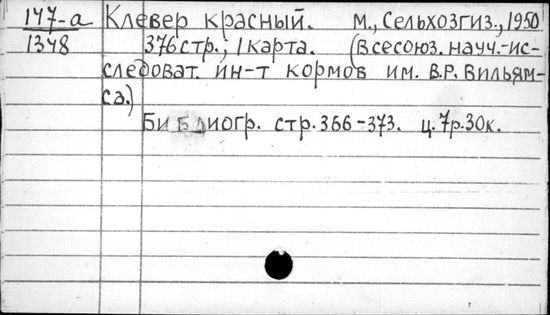 147-а Клевер красный. М., Сельхозгиз., 1950
1348 376 стр.; 1 карта. (Всесоюз. науч.-ис-
следоват. ин-т кормов им. В.Р. Вильям-
са.)
Библиогр. стр. 366-373. ц. 7р. 30к.